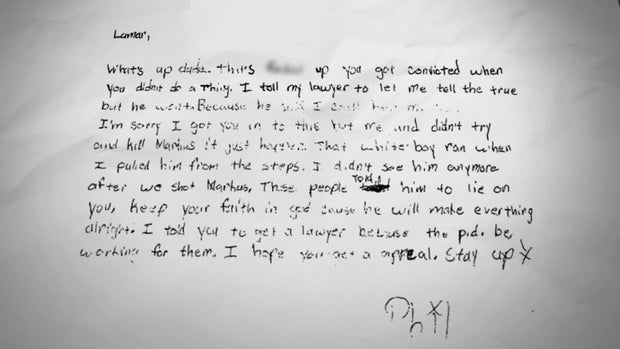 Lamar,
Whats up dude.. this up you got convicted when
you didnt do a thing. I tell my lawyer to let me tell the true
but he wont. Because he I
I'm sorry I got you in to this but me and didn't try
and kill Markus it just happen. That white boy ran when
I pulled him from the steps. I didn't see him anymore
after we shot Markus, These people Told him to lie on
you, keep your faith in god cause he will make everthing
alright. I told you to get a lawyer because the p.d. be
working for them. I hope you get a appeal. Stay up
Phil